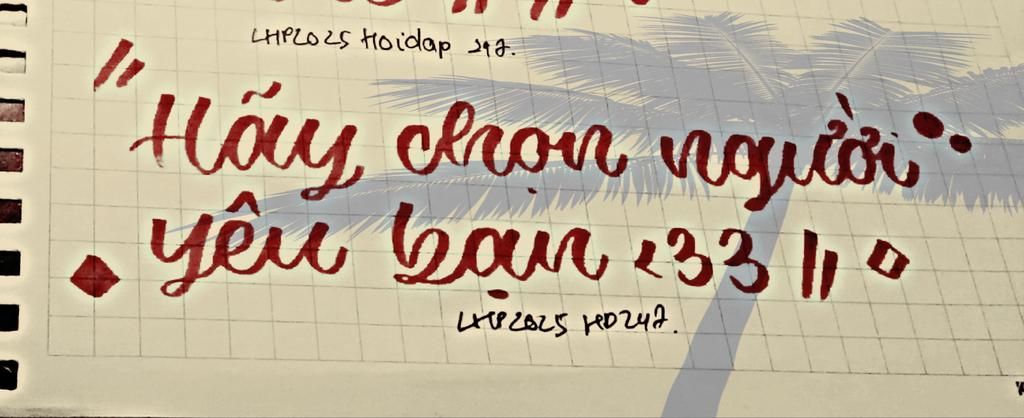 LHP2025 Hoidap 247.
"Hãy chọn người
yêu bạn <33 "
LHP2025 HD247.